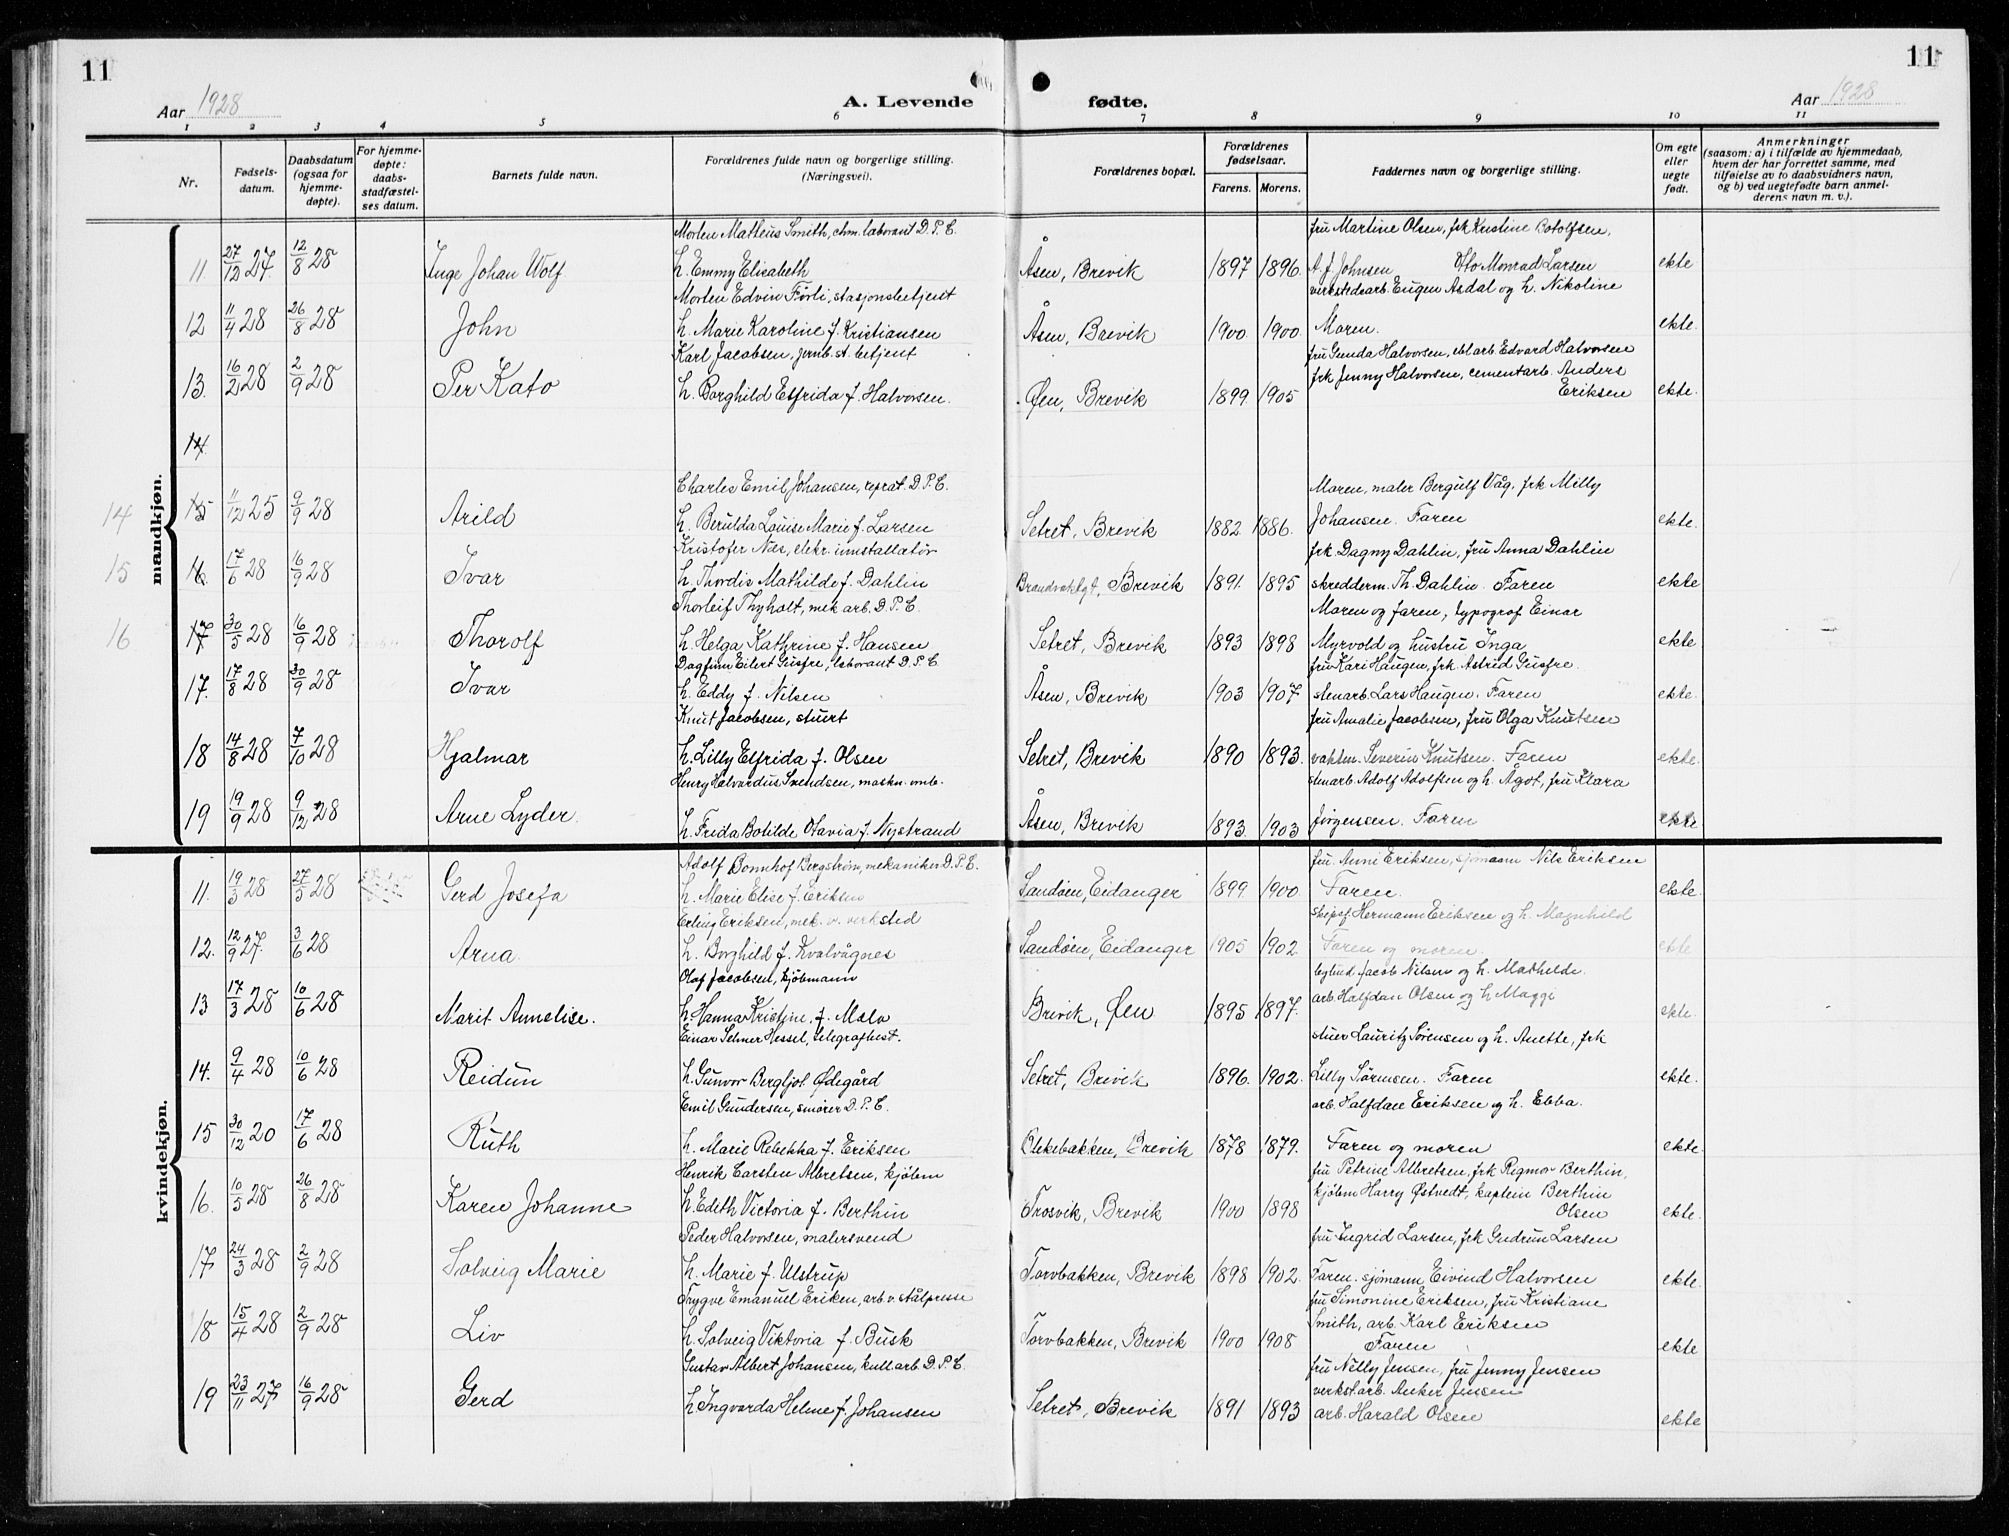 11
11
Aar 1928
A. Levende
fødte.
Aar 1928
1 2 3 4 5 6 7 8 9 10 11
Nr.
Fødsels-
datum.
Daabsdatum
(ogsaa for
hjemme-
døpte).
For hjemme-
døpte:
daabs-
stadfæstel-
ses datum.
Barnets fulde navn.
Forældrenes fulde navn og borgerlige stilling.
(Næringsvei).
Forældrenes bopæl.
Forældrenes
fødselsaar.
Farens. Morens.
Faddernes navn og borgerlige stilling.
Om egte
eller
uegte
født.
Anmerkninger
(saasom: a) i tilfælde av hjemmedaab,
hvem der har forrettet samme, med
tilføielse av to daabsvidners navn,
og b) ved uegtefødte barn anmel-
derens navn m. v.).
mandkjøn.
Morten Matteus Smith, chm. laborant D.P.C. fru Martine Olsen, frk Kristine Botolfsen,
11 27/12 27. 12/8 28 Inge Johan Wolf h. Emmy Elisabeth Åsen, Brevik 1897 1896. A. J. Johnsen Otto Monrad Larsen ekte
Morten Edvin Førli, stasjonsbetjent verkstedsarb. Eugen Asdal og h. Nikoline
12 11/4 28 26/8 28 John h. Marie Karoline f. Kristiansen Åsen, Brevik 1900. 1900 Moren. ekte.
Karl Jacobsen, jernb. st. betjent fru Gunda Halvorsen, ebl arb. Edvard Halvorsen
frk Jenny Halvorsen, cementarb. Anders
13. 16/2 28 2/9 28 Per Kato h. Borghild Elfrida f. Halvorsen. Øen, Brevik 1899. 1905 Eriksen ekte.
14.
Charles Emil Johansen, reprat. D.P.C. Moren, maler Bergulf Våg, frk Milly
14 15 11/12 25 9/9 28 Arild h. Berulda Louise Marie f. Larsen Setret, Brevik 1882. 1886. Johansen. Faren ekte.
Kristofer Næs, elekr. innstallatør frk. Dagny Dahlin, fru Anna Dahlin
15 16. 17/6 28 16/9 28 Ivar h. Thordis Mathilde f. Dahlin Brevik 1891. 1895 skredderm. Th. Dahlin. Faren ekte
Thorleif Thyholt, mek arb. D.P.C. Moren og faren, typograf Einar
16 17 30/5 28 16/9 28 Thorolf h. Helga Kathrine f. Hansen Setret, Brevik 1893 1898 Myrvold og hustru Inga ekte.
Dagfinn Eilert Gusfre, laborant D.P.C. fru Kari Haugen, frk. Astrid Gusfre.
17. 17/8 28 30/9 28 Ivar h. Eddy f. Nilsen Åsen, Brevik 1903 1907 stenarb. Lars Haugen. Faren ekte.
Knut Jacobsen, stuert fru Amalie Jacobsen, fru Olga Knutsen
18 14/8 28 7/10 28 Hjalmar h. Lilly Elfrida f. Olsen Setret, Brevik 1890 1893. vaktm. Severin Knutsen. Faren ekte.
Henry Halvardus Svendsen, maskn. omb. stenarb. Adolf Adolfsen og h. Ågot, fru Klara
19 19/9 28 9/12 28 Arne Lyder. h. Frida Botilde Otavia f. Nystrand Åsen, Brevik 1893. 1903 Jørgensen. Faren ekte
kvindekjøn.
Adolf Bonnhof Bergstrøm, mekaniker D.P.C. fru. Anni Eriksen, sjømann Nils Eriksen
11. 19/3 28 27/5 28 Gerd Josefa h. Marie Elise f. Eriksen Sandøen, Eidanger 1899. 1900 Faren. ekte.
Erling Eriksen, mek. v. verksted skipsf Hermann Eriksen og h. Magnhild
12. 12/9 27. 3/6 28 Arna. h. Borghild f. Kvalvågnes Sandøen, Eidanger 1905 1902 Faren og moren. ekte
Olaf Jacobsen, kjøbmann Jacob Nilsen og h. Mathilde.
arb. Halfdan Olsen og h. Maggi
13 17/3 28 10/6 28 Marit Annelise. h. Hanna Kristine f. Malo Brevik, Øen 1895 1897. ekte.
Einar Selmer Hessel, telegrafbest. stuer Lauritz Sørensen og h. Anette, frk
14. 9/4 28 10/6 28 Reidun h. Gunvor Bergljot Ødegård Setret, Brevik 1896. 1902. Lilly Sørensen. Faren ekte.
Emil Gundersen, smører D.P.C. arb. Halfdan Eriksen og h. Ebba.
15 30/12 20 17/6 28 Ruth h. Marie Rebekka f. Eriksen Blekebakken, Brevik 1878 1879. Faren og moren ekte.
Henrik Carsten Albretsen, kjøbm fru Petrine Albretsen, frk Rigmor Berthin,
kjøbm Harry Østvedt, kaptein Berthin
16. 10/5 28 26/8 28 Karen Johanne h. Edith Victoria f. Berthin Trosvik, Brevik 1900 1898 Olsen ekte.
Peder Halvorsen, malersvend fru Ingrid Larsen, frk Gudrun Larsen
17 24/3 28 2/9 28 Solveig Marie h. Marie f. Ulstrup Torvbakken, Brevik 1898 1902. Faren. sjømann Eivind Halvorsen ekte.
Trygve Emanuel Eriken, arb. v. stålpresse fru Simonine Eriksen, fru Kristiane
Smith, arb. Karl Eriksen
18 15/4 28 2/9 28 Liv h. Solveig Viktoria f. Busk Torvbakken, Brevik 1900 1908 Faren ekte
Gustav Albert Johansen, kullarb D.P.C. fru Nelly Jensen, fru Jenny Jensen
verkst. arb. Anker Jensen
19 23/11 27 16/9 28 Gerd h. Ingvarda Helene f. Johansen Setret, Brevik 1891 1893 arb. Harald Olsen ekte